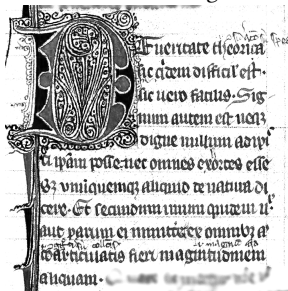 De ueritate theorica
sic qidem difficil' est.
sic uero facilis. Sig
num autem est neqz
digne nullum adipi
ci ipam posse. nec omnes exortes esse
sz vnumquemqz aliquid de natura di
cere. Et secundum unum quidem
aut parum ei inmittere omnibz a
coarticulatis fieri magnitudinem
aliquam.